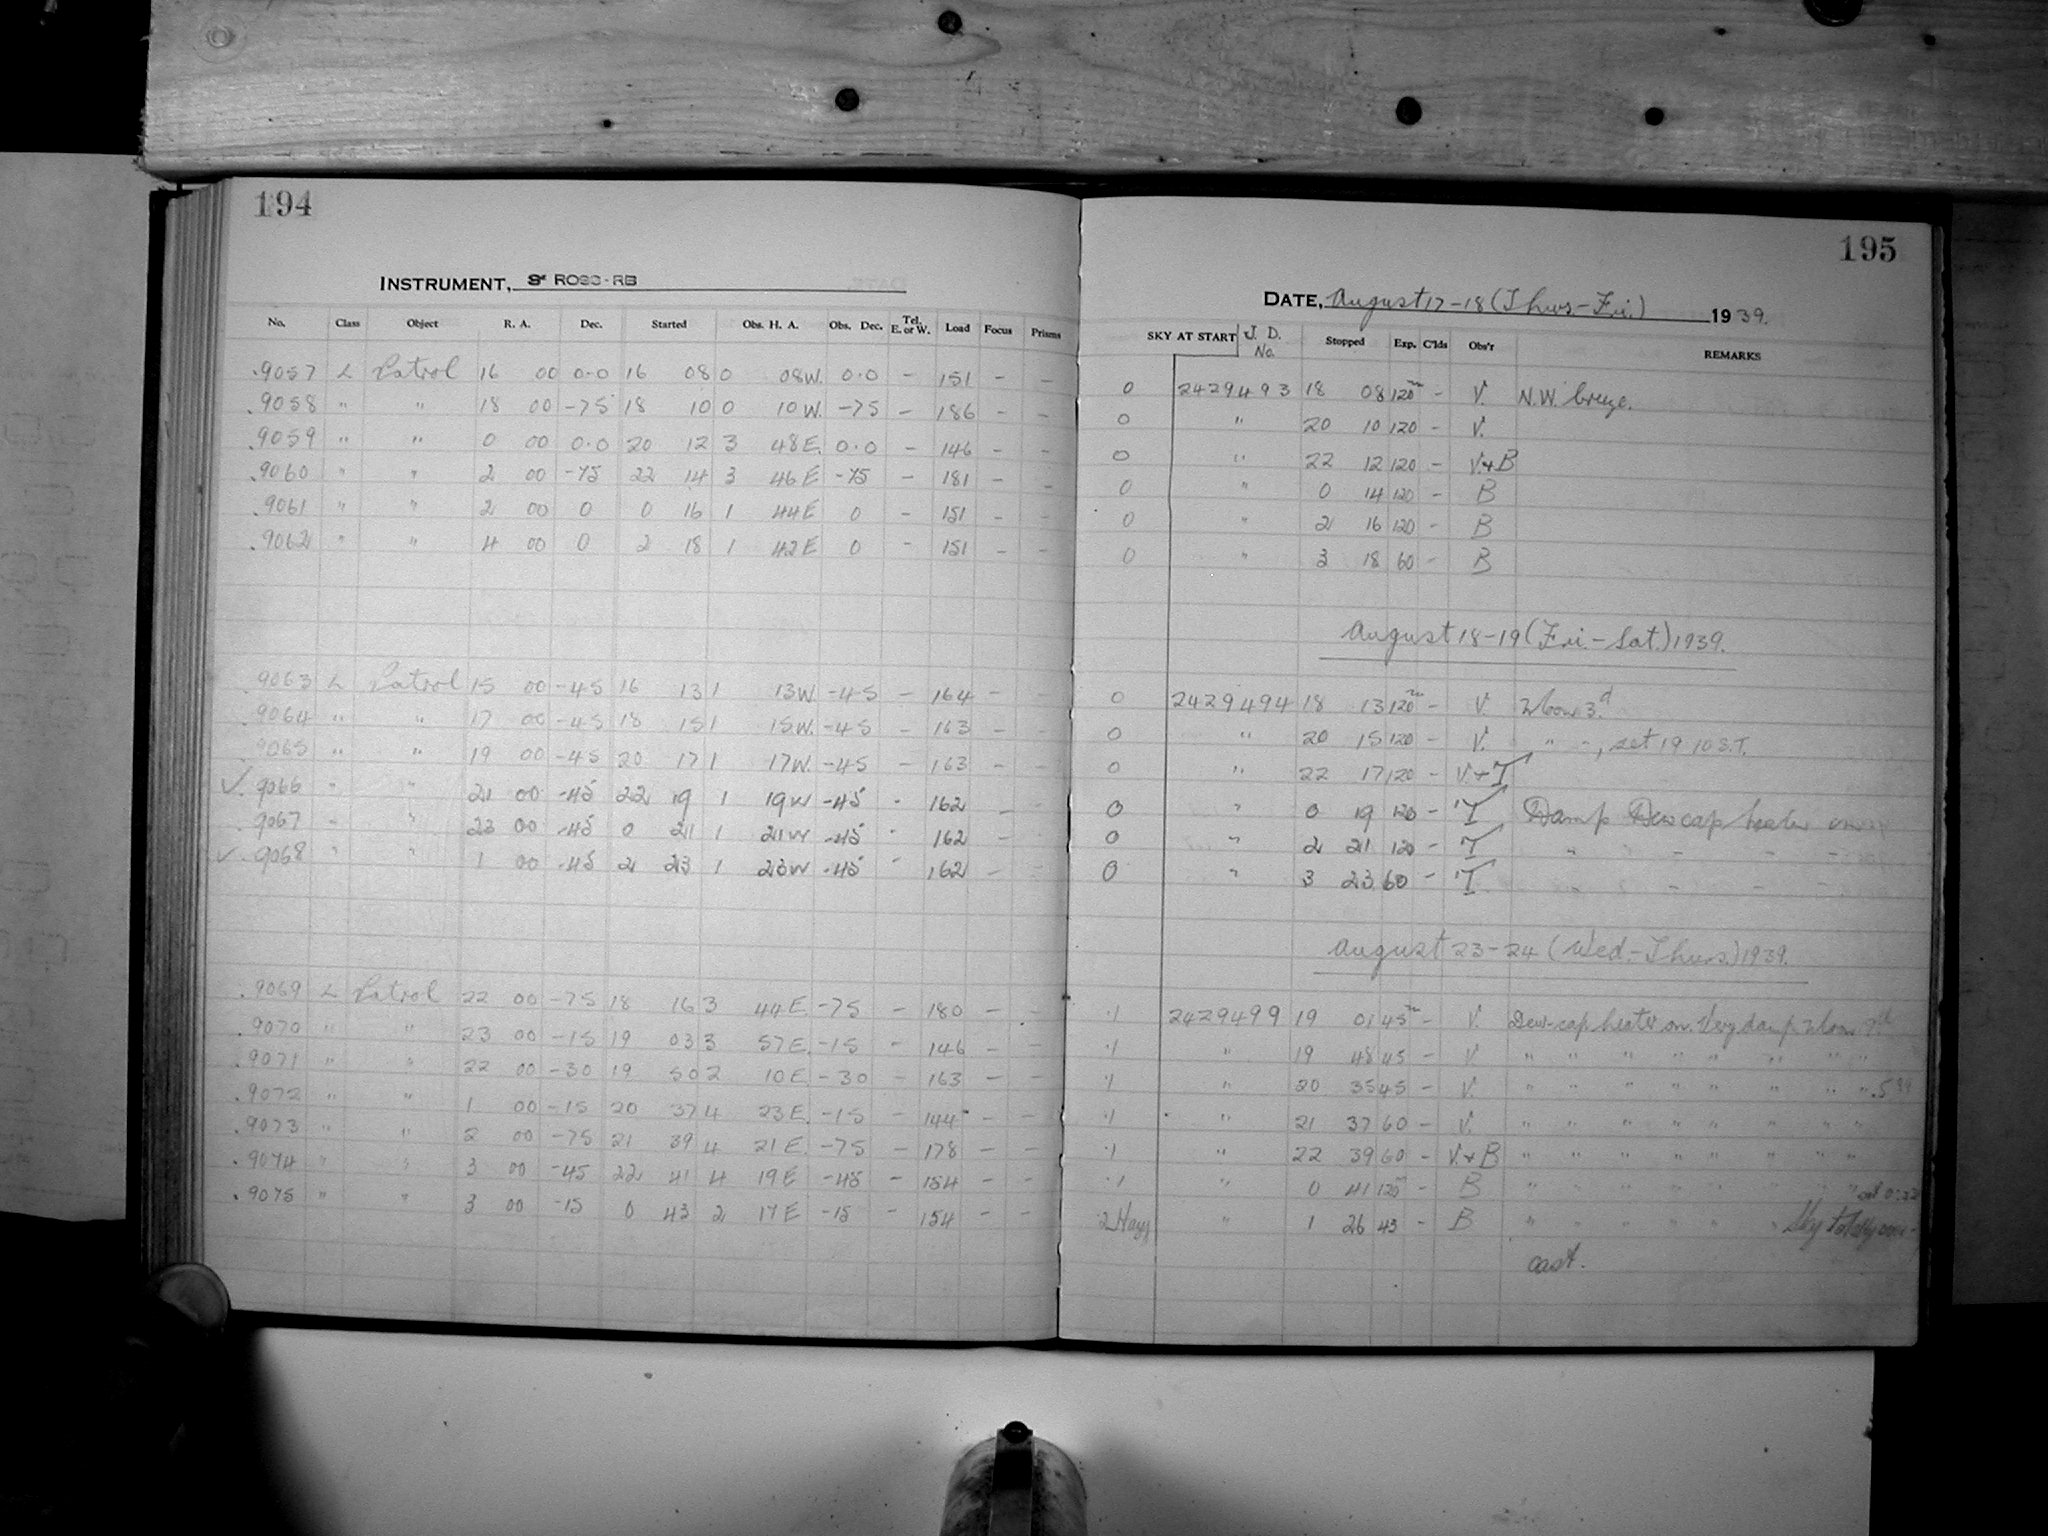 194
INSTRUMENT, ROSS-RB
No. Class Object R. A. Dec. Started Obs. H. A. Obs. Dec. Tel. E. or W. Load Focus Prisms
.9057 L Patrol 16 00 0.0 16 08 0 08W. 0.0 - 151 - -
.9058 " " 18 00 -75 18 10 0 10W. -75 - 186 - -
.9059 " " 0 00 0.0 20 12 3 48E. 0.0 - 146 - -
.9060 " " 2 00 -75 22 14 3 46E -75 - 181 - -
.9061 " " 2 00 0 0 16 1 44E 0 - 151 - -
.9062 " " 4 00 0 2 18 1 42E 0 - 151 - -
.9063 L Patrol 15 00 -45 16 13 1 13W. -45 - 164 - -
.9064 " " 17 00 -45 18 15 1 15W. -45 - 163 - -
9065 " " 19 00 -45 20 17 1 17W. -45 - 163 - -
✓. 9066 " " 21 00 -45 22 19 1 19W -45 - 162 - -
.9067 " " 23 00 -45 0 21 1 21W -45 - 162 - -
✓ .9068 " " 1 00 -45 2 23 1 23W -45 - 162 - -
.9069 L Patrol 22 00 -75 18 16 3 44E. -75 - 180 - -
.9070 " " 23 00 -15 19 03 3 57E. -15 - 146 - -
.9071 " " 22 00 -30 19 50 2 10E -30 - 163 - -
.9072 " " 1 00 -15 20 37 4 23E. -15 - 144 - -
.9073 " " 2 00 -75 21 39 4 21E. -75 - 178 - -
.9074 " " 3 00 -45 22 41 4 19E -45 - 154 - -
.9075 " " 3 00 -15 0 43 2 17E -15 - 154 - -
195
DATE, August 17-18 (Thurs-Fri.) 1939.
SKY AT START J. D. No. Stopped Exp. C'lds Obs'r REMARKS
0 2429493 18 08 120m - V. N.W. breeze.
0 " 20 10 120 - V.
0 " 22 12 120 - V.+B
0 " 0 14 120 - B
0 " 2 16 120 - B
0 " 3 18 60 - B
August 18-19 (Fri.-Sat.) 1939.
0 2429494 18 13 120m - V. Moon 3.d
0 " 20 15 120 - V. " -, set 19 10 S.T.
0 " 22 17 120 - V.+T
0 " 0 19 120 - T Damp Dew cap heater on
0 " 2 21 120 - T " " - - -
0 " 3 23 60 - T " " - - -
August 23-24 (Wed.-Thurs.) 1939.
.1 2429499 19 01 45m - V. Dew-cap heater on. Very damp Moon
.1 " 19 48 45 - V. " " " " " " " "
.1 " 20 35 45 - V. " " " " " " " "
.1 " 21 37 60 - V. " " " " " " " "
.1 " 22 39 60 - V.+B " " " " " " " "
.1 " 0 41 120m - B " " " " " " " "
.2 Hazy " 1 26 43 - B " " " " " " Sky totally over-
cast.